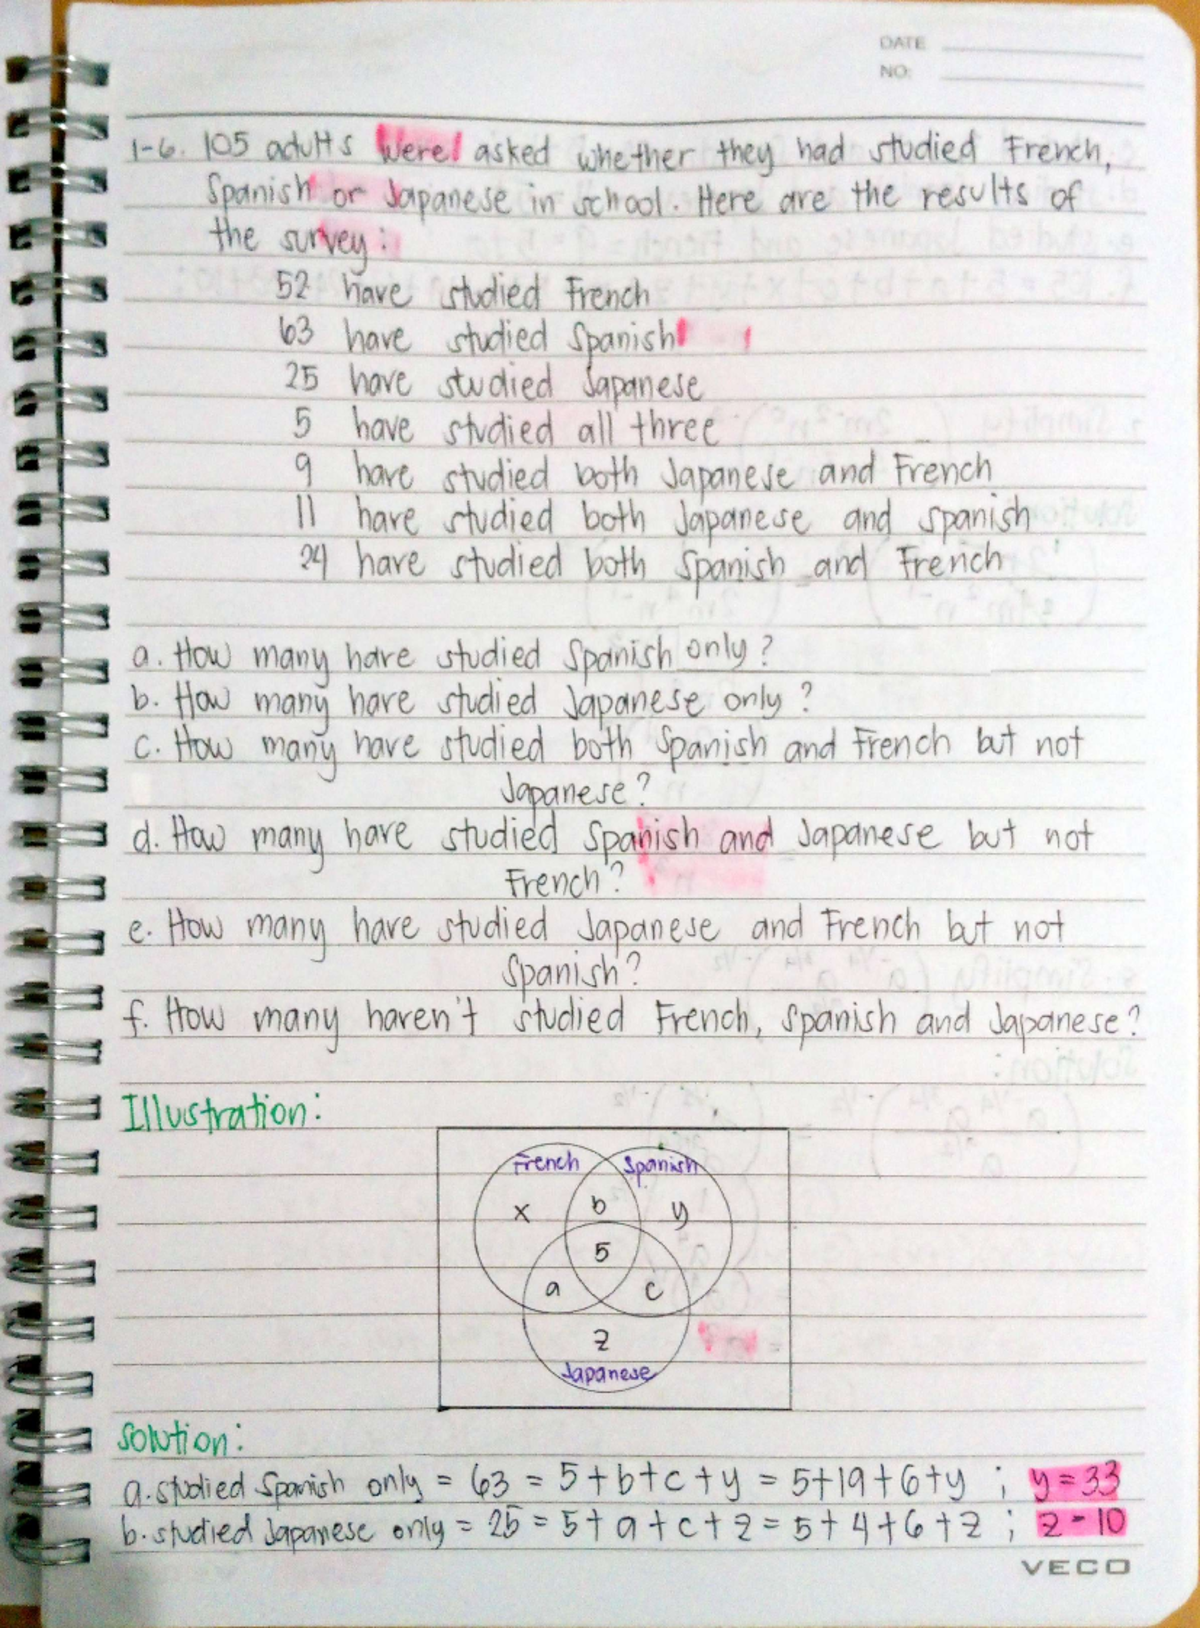 DATE
NO:
1-6. 105 adults were asked whether they had studied French,
Spanish or Japanese in school. Here are the results of
the survey:
52 have studied French
63 have studied Spanish
25 have studied Japanese
5 have studied all three
9 have studied both Japanese and French
11 have studied both Japanese and Spanish
24 have studied both Spanish and French
a. How many have studied Spanish only?
b. How many have studied Japanese only?
c. How many have studied both Spanish and French but not
Japanese?
d. How many have studied Spanish and Japanese but not
French?
e. How many have studied Japanese and French but not
Spanish?
f. How many haven't studied French, Spanish and Japanese?
Illustration:
French Spanish
x b y
5
a c
z
Japanese
Solution:
a. studied Spanish only = 63 = 5+b+c+y = 5+19+6+y ; y=33
b. studied Japanese only = 25 = 5+a+c+z = 5+4+6+z ; z=10
VECO